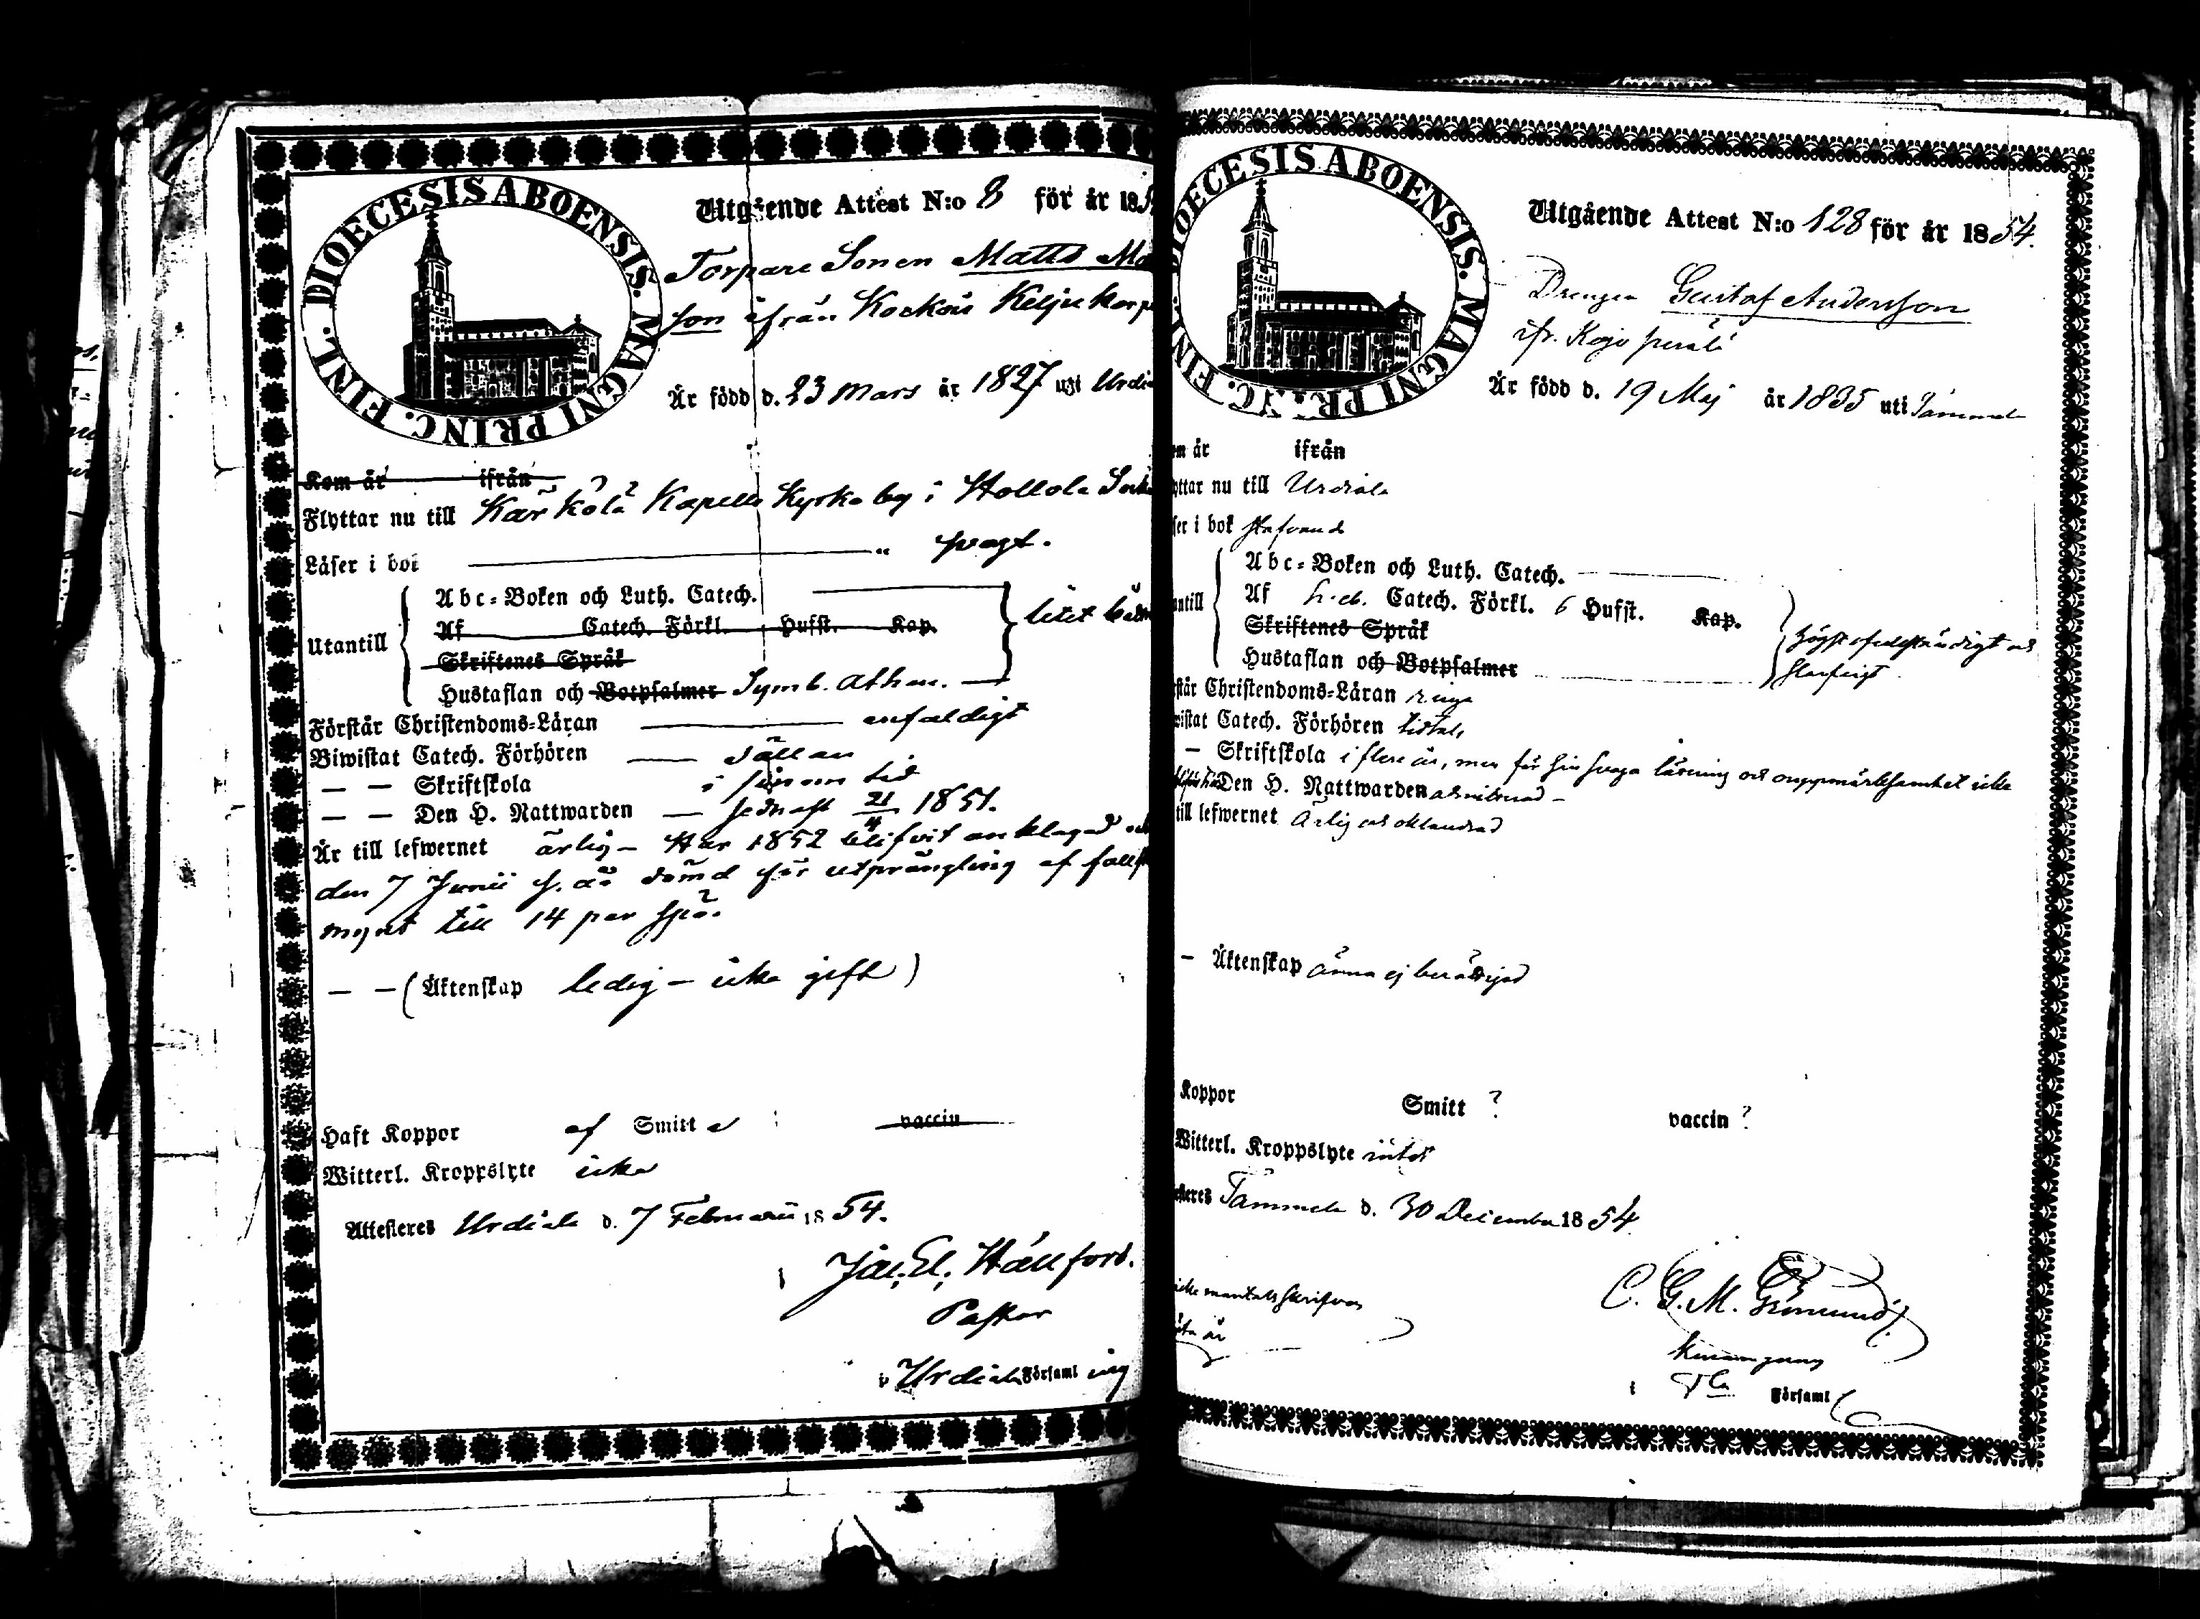 DIOECESIS ABOENSIS. MAGNI PRINC. FINL.
Utgående Attest N:o 8 för år 185
Torpare Sonen Matts Ma
son ifrån Kockois Keljukorp
Är född d. 23 Mars år 1827 uti Urdia
Kom år ifrån
Flyttar nu till Kärkölä Kapells Kyrkoby i Hollola Sock
Läser i bok svagt.
Utantill
Abc-Boken och Luth. Catech.
Af Catech. Förkl. Hufst. Kap.
litet bätt
Skriftenes Språk
Hustaflan och Botpsalmer Symb. Athan.
Förstår Christendoms-Läran enfaldigt
Biwistat Catech. Förhören sällan
— — Skriftskola i sinom tid
— — Den H. Nattwarden sednast 21/4 1851.
Är till lefwernet ärlig – Har 1852 blifvit anklagad och
den 7 Junii s. å. dömd för utprångling af falskt
mynt till 14 par spö.
— — (Äktenskap ledig – icke gift)
Haft Koppor af Smitt vaccin
Witterl. Kroppslyte icke
Attesteres Urdiala d. 7 Februarii 1854.
Jac. El. Hällfors.
Pastor
i Urdiala Församling
DIOECESIS ABOENSIS. MAGNI PRINC. FINL.
Utgående Attest N:o 128 för år 1854.
Drengen Gustaf Andersson
ifr. Kojo perälä
Är född d. 19 Maj år 1835 uti Tammela
om år ifrån
yttar nu till Urdiala
ser i bok stafvande
antill
Abc-Boken och Luth. Catech.
Af Catech. Förkl. 6 Hufst. Kap.
Skriftenes Språk
Hustaflan och Botpsalmer
högst ofullständigt och
slarfvigt
rstår Christendoms-Läran ringa
wistat Catech. Förhören
— Skriftskola i flere år, men för sin svaga läsning och ouppmärksamhet icke
Den H. Nattwarden admitterad –
till lefwernet Ärlig och oklandrad
— Äktenskap ännu ej berättigad
Koppor Smitt ? vaccin ?
Witterl. Kroppslyte intet
steres Tammela d. 30 December 1854
icke mantalsskrifven
detta år
C. G. M. Grönlund
i Tla Församl